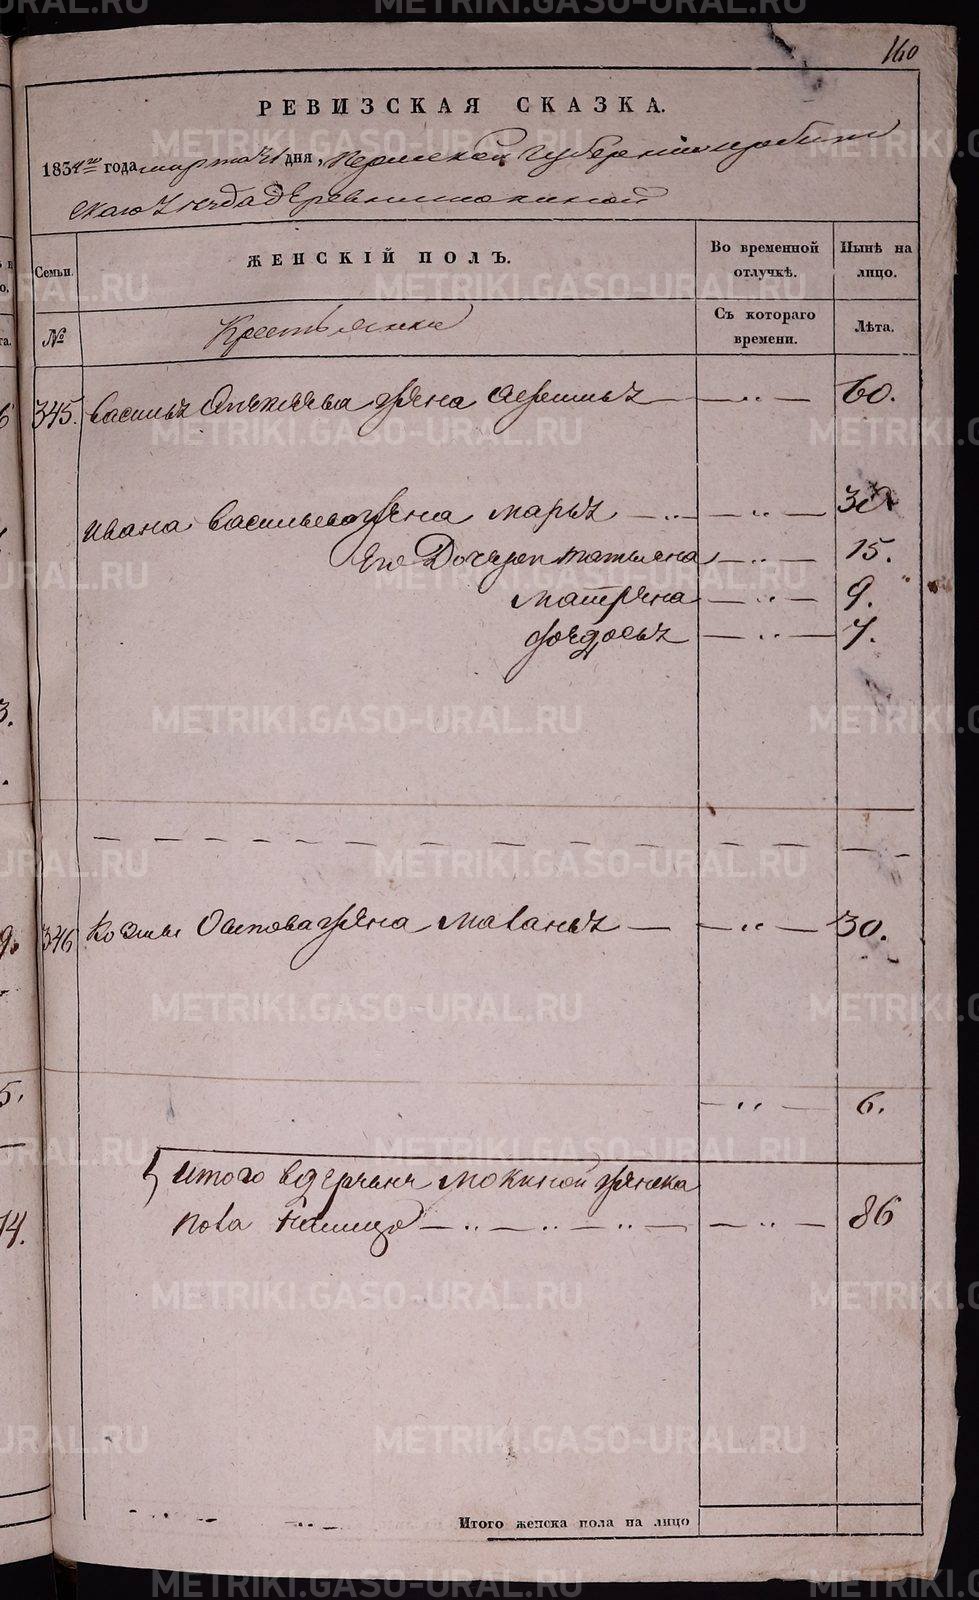 160
РЕВИЗСКАЯ СКАЗКА.
1854го года марта 21 дня, Пермской губернии Ирбит
скаго уезда деревни мокиной
Семьи. ЖЕНСКІЙ ПОЛЪ. Во временной отлучкѣ. Нынѣ на лицо.
№ Крестьянки Съ котораго времени. Лѣта.
345. Василья Алексеева жена 60.
Ивана Васильева жена марья 38
Его Дочери татьяна 15.
матрена 9.
федосья 7.
346 Козмы Осипова жена маланья 30.
6.
Итого в деревне мокиной женска
пола налицо 86
Итого женска пола на лицо
METRIKI.GASO-URAL.RU